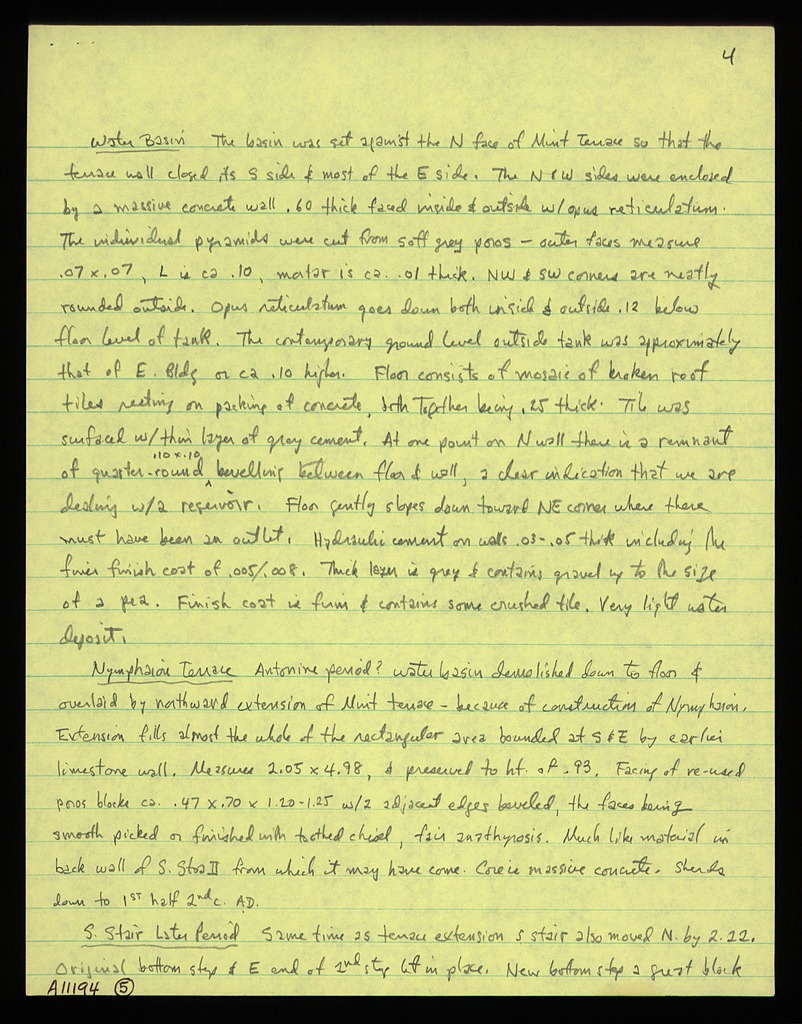 4
Water Basin The basin was set against the N face of Mint Terrace so that the
terrace wall closed its S side & most of the E side. The N & W sides were enclosed
by a massive concrete wall .60 thick faced inside & outside w/opus reticulatum.
The individual pyramids were cut from soft grey poros – outer faces measure
.07 x .07, L is ca .10, mortar is ca. .01 thick. NW & SW corners are neatly
rounded outside. Opus reticulatum goes down both inside & outside .12 below
floor level of tank. The contemporary ground level outside tank was approximately
that of E. Bldg or ca .10 higher. Floor consists of mosaic of broken roof
tiles resting on packing of concrete, both together being .25 thick. Tile was
surfaced w/ thin layer of gray cement. At one point on N wall there is a remnant
of quarter-round ^ .10 x .10 bevelling between floor & wall, a clear indication that we are
dealing w/a reservoir. Floor gently slopes down toward NE corner where there
must have been an outlet. Hydraulic cement on walls .03-.05 thick including the
finer finish coat of .005/.008. Thick layer is grey & contains gravel up to the size
of a pea. Finish coat is firm & contains some crushed tile. Very light water
deposit.
Nymphaion Terrace Antonine period? water basin demolished down to floor &
overlaid by northward extension of Mint terrace – because of construction of Nymphaion.
Extension fills almost the whole of the rectangular area bounded at S & E by earlier
limestone wall. Measures 2.05 x 4.98, & preserved to ht. of .93. Facing of re-used
poros blocks ca. .47 x .70 x 1.20-1.25 w/2 adjacent edges beveled, the faces being
smooth picked or finished with toothed chisel, fair anathyrosis. Much like material in
back wall of S. Stoa II from which it may have come. Core is massive concrete. Sherds
down to 1ST half 2nd c. AD.
S. Stair Later Period Same time as terrace extension S stair also moved N. by 2.22.
Original bottom step & E end of 2nd step left in place. New bottom step a great block
A11194 (5)